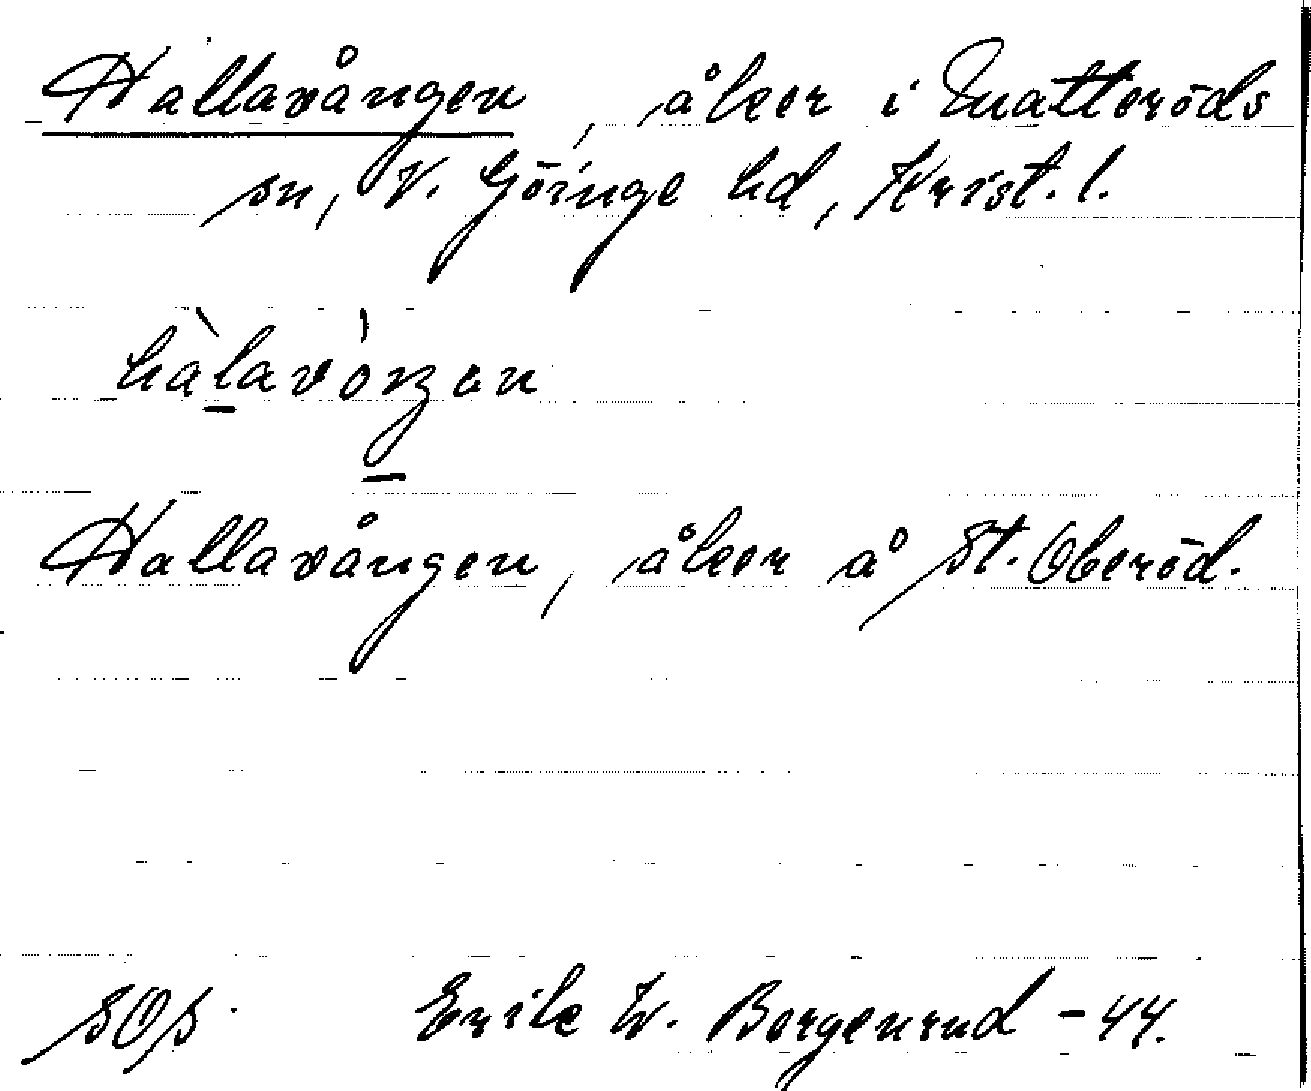 Hallavången, åker i Matteröds
sn, V. Göinge hd, Krist. l.
hàlavóŋən
Hallavången, åker å St. Oberöd.
SOS. Erik W. Bergenrud -44.